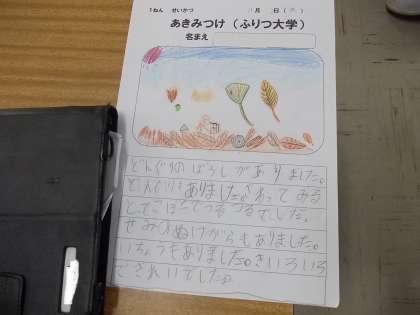 1ねん せいかつ 月 日( )
あきみつけ(ふりつ大学)
名まえ
どんぐりのぼうしがありました。
どんぐりもありました。さわってみる
とでこぼこでつるつるでした。
せみのぬけがらもありました。
いちょうもありました。きいろいろ
できれいでした。